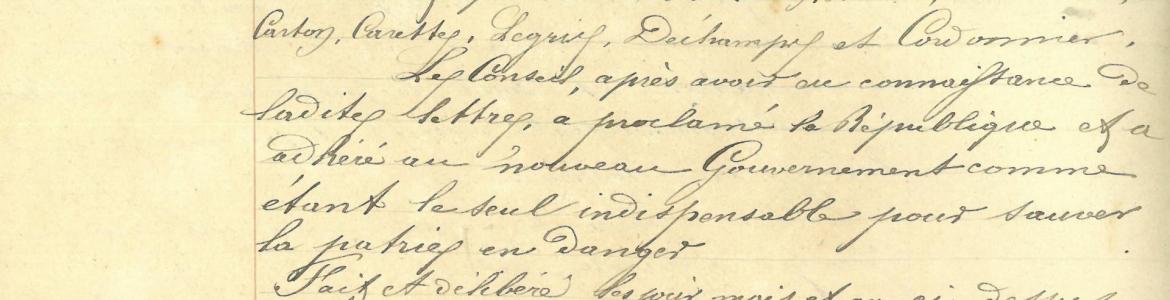 Carton, Carette, Legris, Déchamps et Cordonnier.
Le Conseil, après avoir eu connaissance de
ladite lettre, a proclamé la République et a
adhéré au nouveau Gouvernement comme
étant le seul indispensable pour sauver
la patrie en danger
Fait et délibéré les jour mois et an